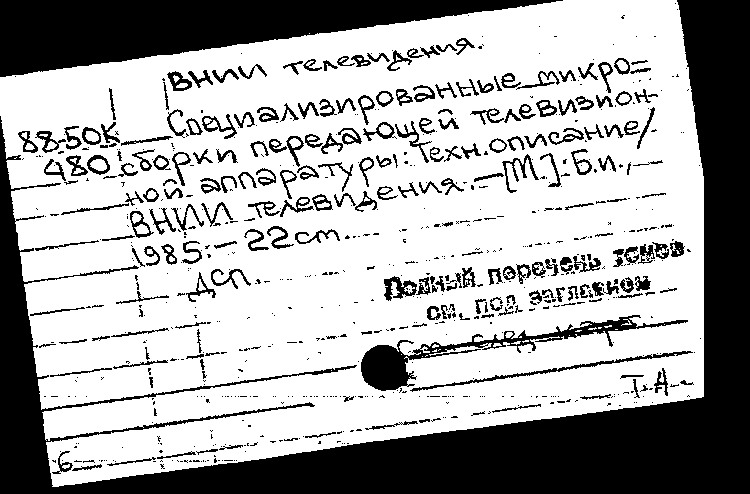 ВНИИ телевидения.
88-50К Специализированные микро=
480 сборки передающей телевизион-
ной аппаратуры: Техн. описание/
ВНИИ телевидения. – [М.]: Б.и.,
1985. – 22 cm.
ДСП.
Полный перечень томов
см. под заглавием
См след карт.
Т-А
6